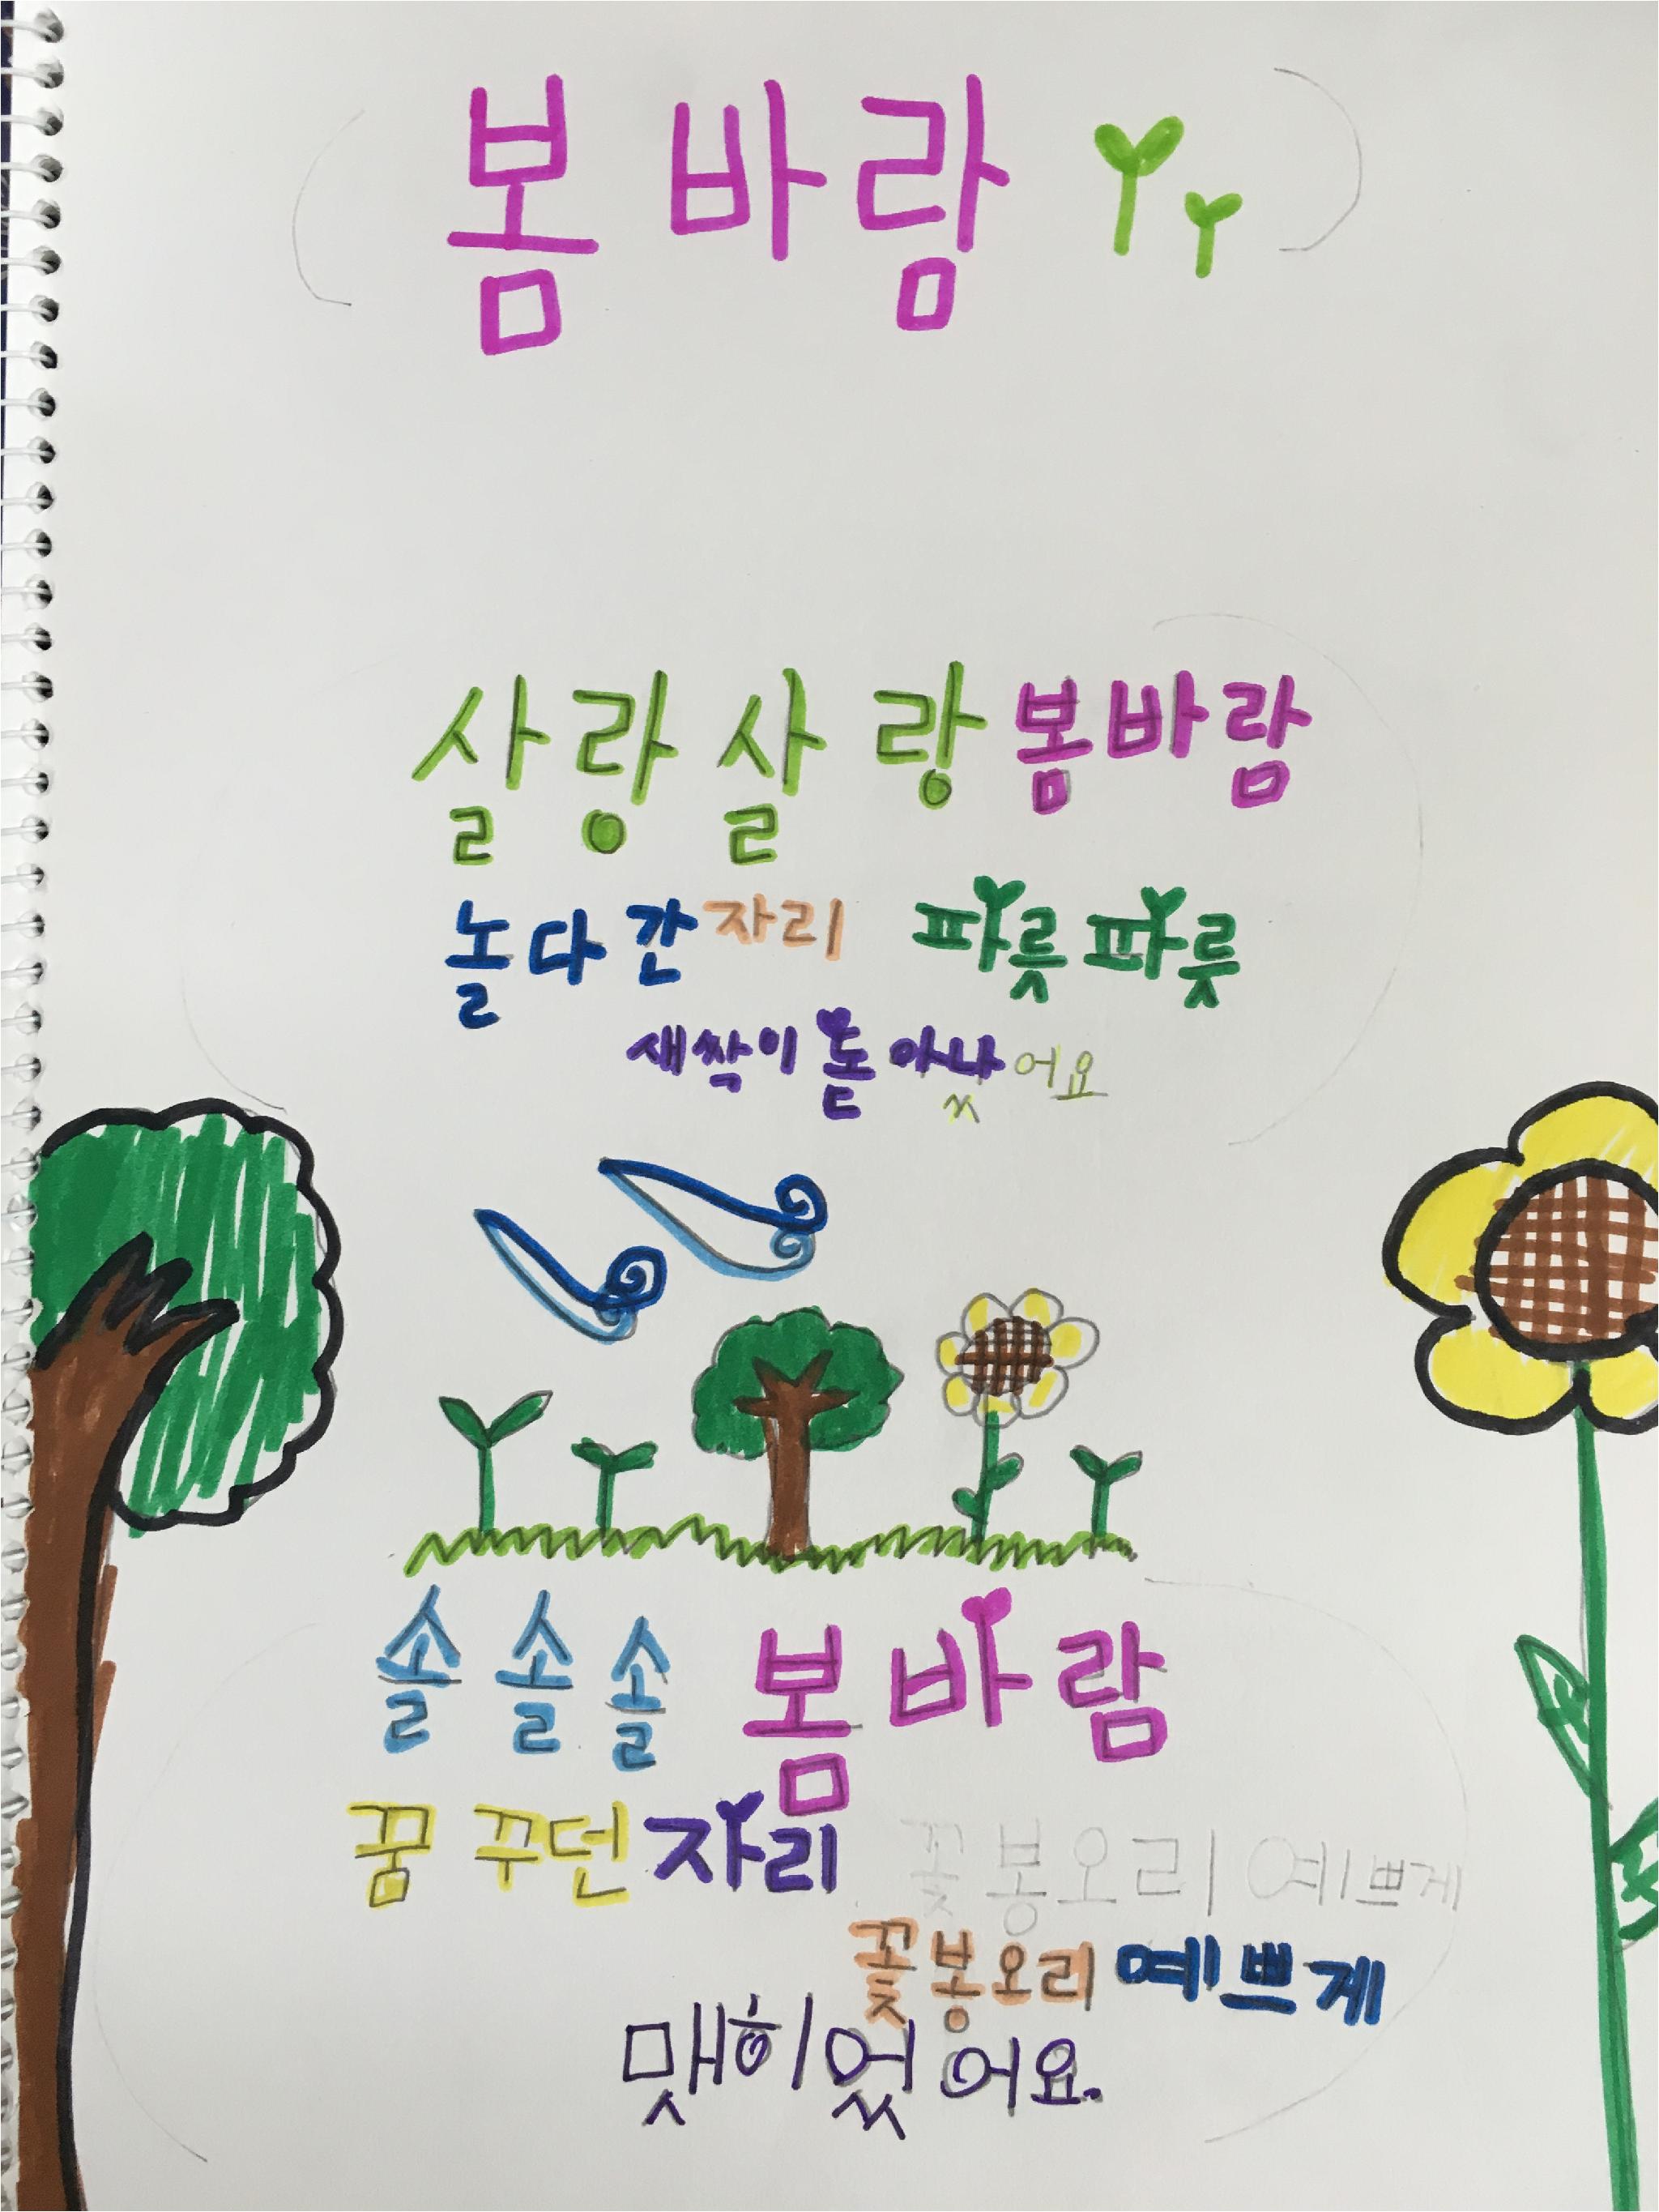 봄 바람
살랑살랑 봄바람
놀다 간 자리 파릇파릇
새싹이 돋아났어요
솔솔솔 봄바람
꿈 꾸던 자리 꽃봉오리 예쁘게
꽃봉오리 예쁘게
맺히었어요.